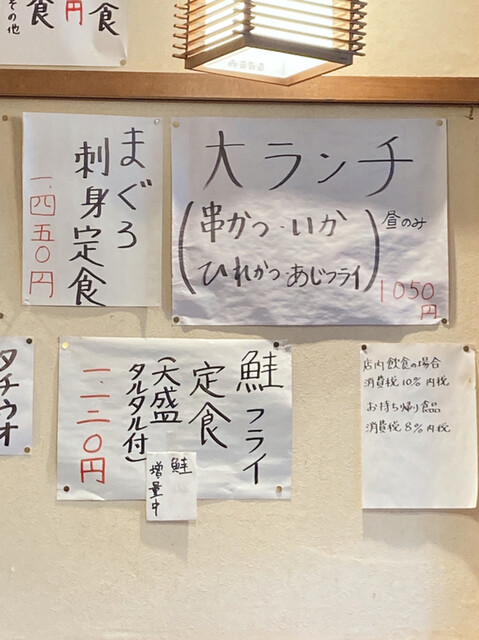 その他
食
円
食
まぐろ
刺身定食
一、四五〇円
大ランチ
(串かつ・いか
ひれかつ・あじフライ)
昼のみ
1050
円
タチウオ
鮭フライ
定食
(大盛
タルタル付)
一、一二〇円
鮭
増量中
店内飲食の場合
消費税10%内税
お持ち帰り食品
消費税8%内税